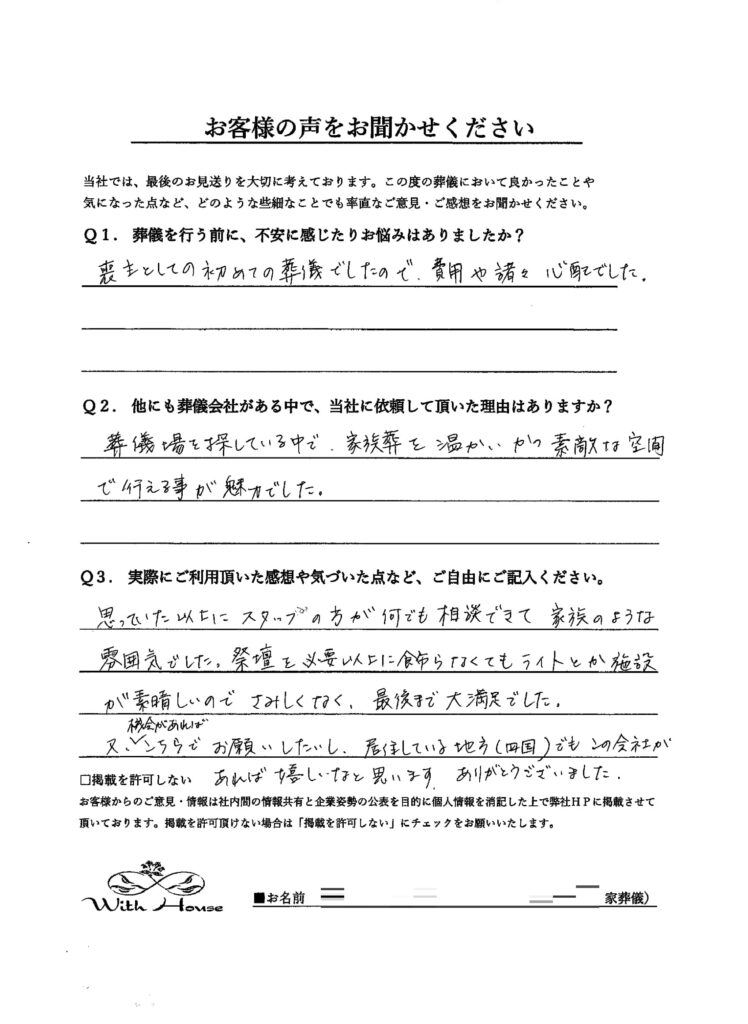 お客様の声をお聞かせください
当社では、最後のお見送りを大切に考えております。この度の葬儀において良かったことや
気になった点など、どのような些細なことでも率直なご意見・ご感想をお聞かせください。
Q1. 葬儀を行う前に、不安に感じたりお悩みはありましたか？
喪主としての初めての葬儀でしたので、費用や諸々心配でした。
Q2. 他にも葬儀会社がある中で、当社に依頼して頂いた理由はありますか？
葬儀場を探している中で、家族葬を温かいかつ素敵な空間
で行える事が魅力でした。
Q3. 実際にご利用頂いた感想や気づいた点など、ご自由にご記入ください。
思っていた以上にスタッフの方が何でも相談できて家族のような
雰囲気でした。祭壇を必要以上に飾らなくてもライトとか施設
が素晴しいのでさみしくなく、最後まで大満足でした。
機会があれば
又、こちらでお願いしたいし、居住している地方(四国)でもこの会社が
あれば嬉しいなと思います。ありがとうございました。
□掲載を許可しない
お客様からのご意見・情報は社内間の情報共有と企業姿勢の公表を目的に個人情報を消記した上で弊社HPに掲載させて
頂いております。掲載を許可頂けない場合は「掲載を許可しない」にチェックをお願いいたします。
With House
■お名前 家葬儀）